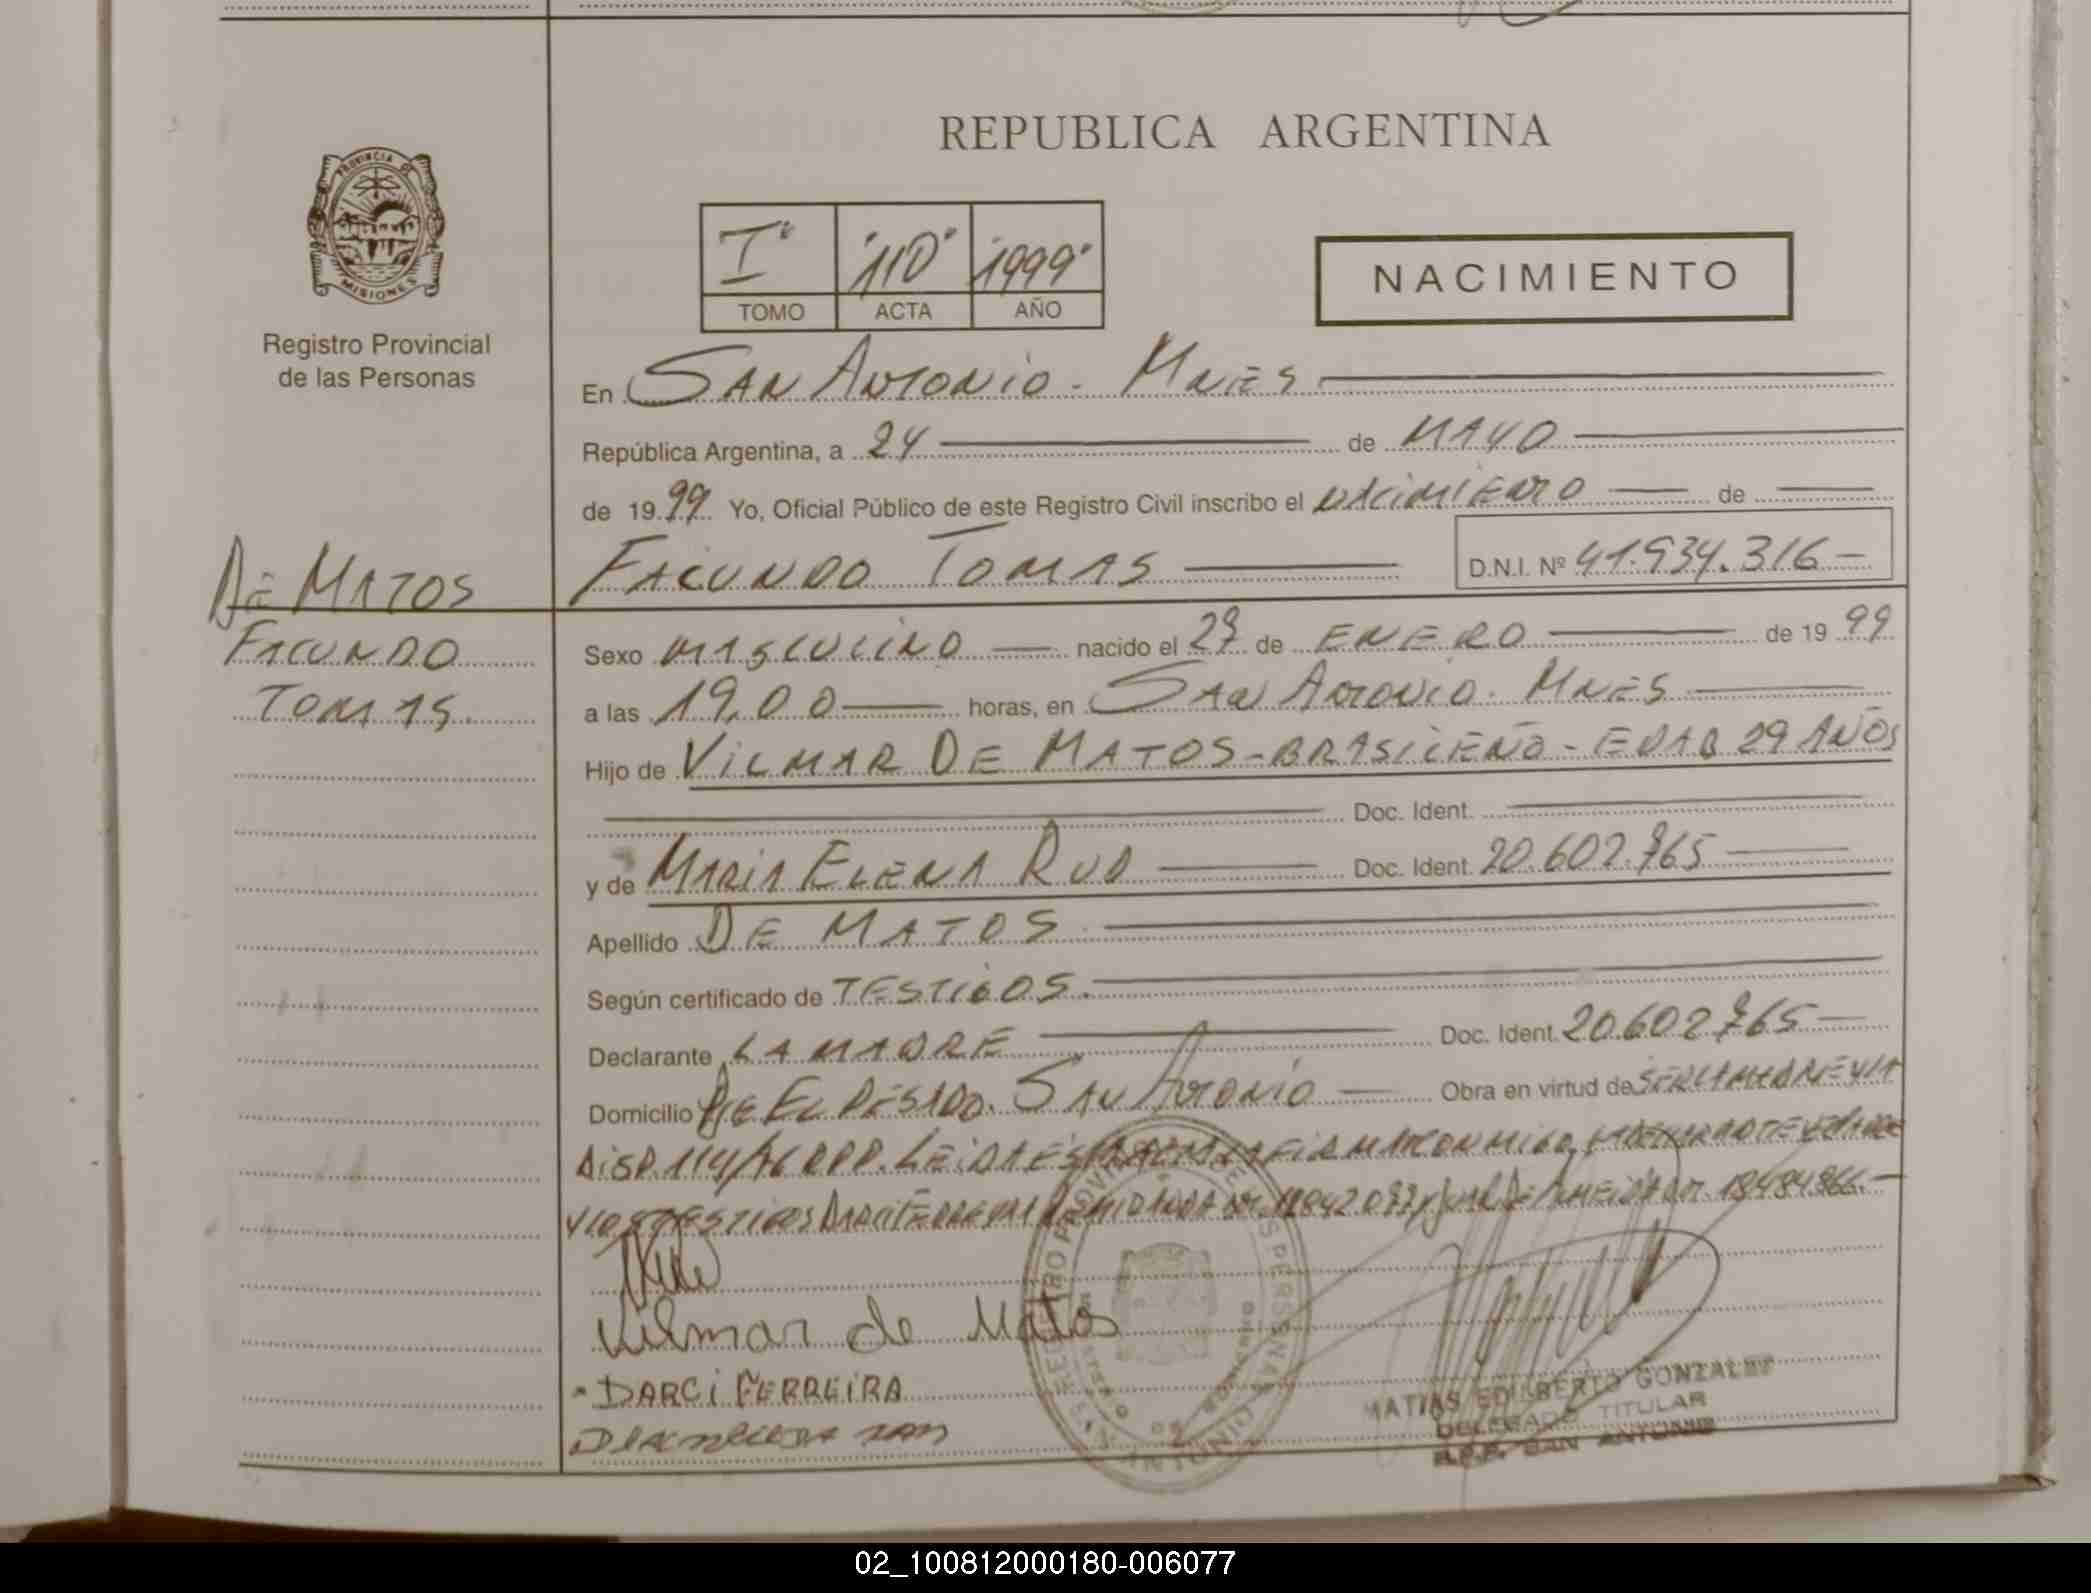 REPUBLICA ARGENTINA
PROVINCIA DE
MISIONES
Registro Provincial
de las Personas
I" "110" "1999"
TOMO ACTA AÑO
NACIMIENTO
En SAN ANTONIO - MNES
República Argentina, a 24 de MAYO
de 1999 Yo, Oficial Público de este Registro Civil inscribo el NACIMIENTO de
FACUNDO TOMAS D.N.I. Nº 41.934.316-
DE MATOS
FACUNDO
TOMAS.
Sexo MASCULINO nacido el de ENERO de 1999
a las 19,00 horas, en SAN ANTONIO. MNES
Hijo de VILMAR DE MATOS - BRASILEÑO - EDAD 29 AÑOS
Doc. Ident.
y de MARIA ELENA Doc. Ident. 20.602.765
Apellido DE MATOS
Según certificado de TESTIGOS.
Declarante LA MADRE Doc. Ident. 20.602.765
Domicilio SAN ANTONIO Obra en virtud de SER LA MADRE Y LA
DISP. 114/ RPP. LEIDA ESTA ACTA LA FIRMAN CONMIGO, LA DECLARANTE
Y LOS TESTIGOS DARCI FERREIRA DE ALMEIDA
Vilmar de Matos
- DARCI FERREIRA
MATIAS EDILBERTO GONZALEZ
DELEGADO TITULAR
R.P.P. SAN ANTONIO
02_100812000180-006077